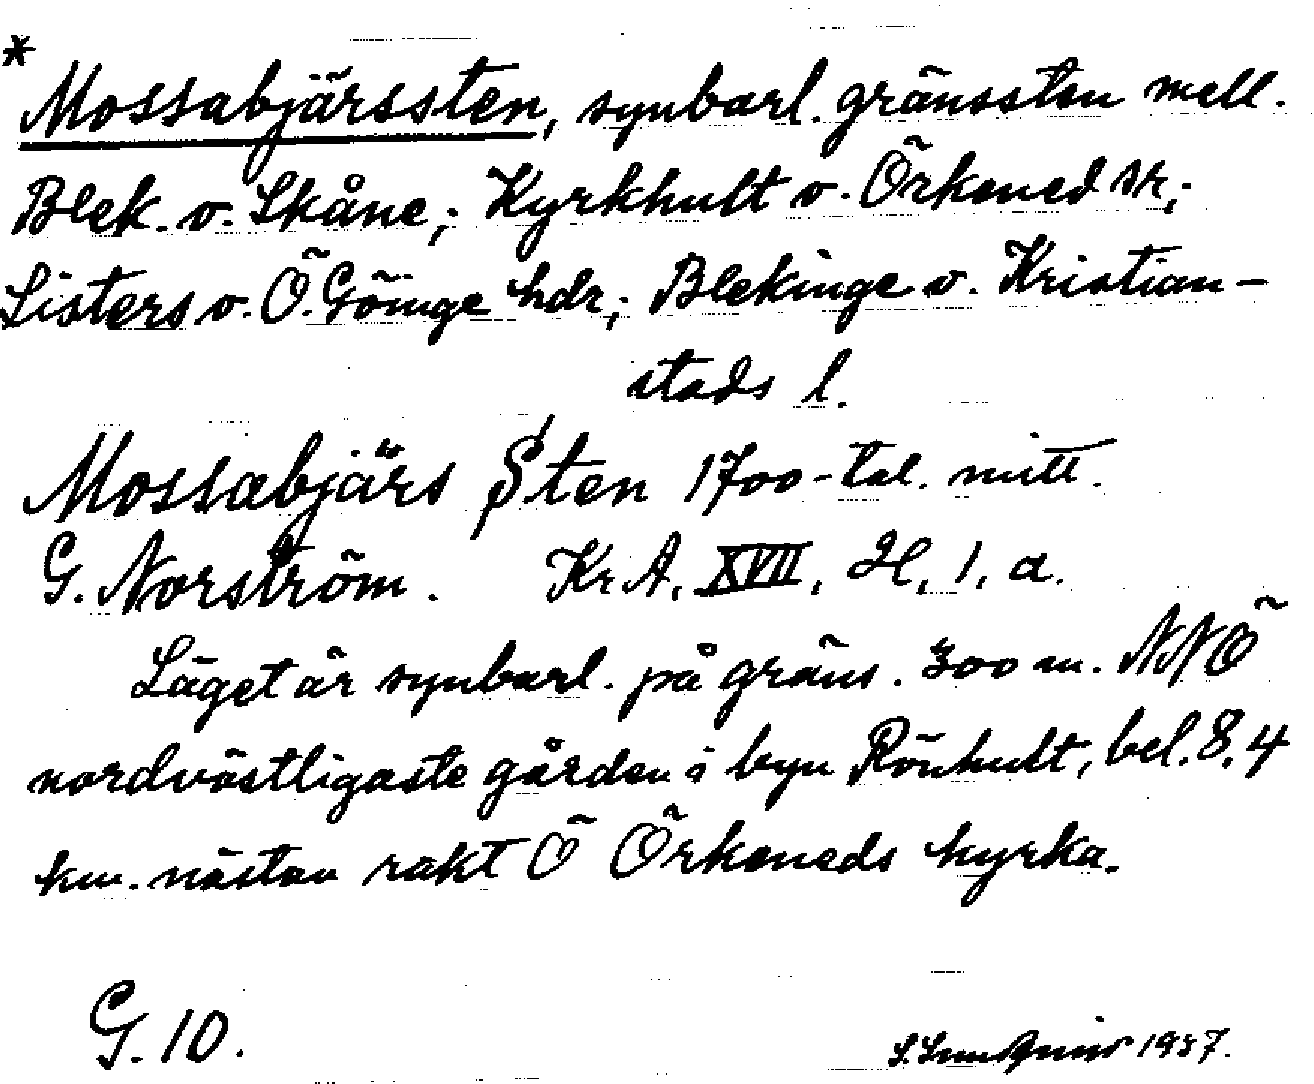 * Mossabjärssten, synbarl. gränssten mell.
Blek. o. Skåne; Kyrkhult o. Örkened sr;
Listers o. Ö. Göinge hdr; Blekinge o. Kristian-
stads l.
Mossabjärs Sten 1700-tal. mitt.
G. Norström. Kr A, XVII, H, 1, a.
Läget är synbarl. på gräns. 300 m. NNÖ
nordvästligaste gården i byn Rönhult, bel. 8,4
km. nästan rakt Ö Örkeneds kyrka.
G. 10.
1937.